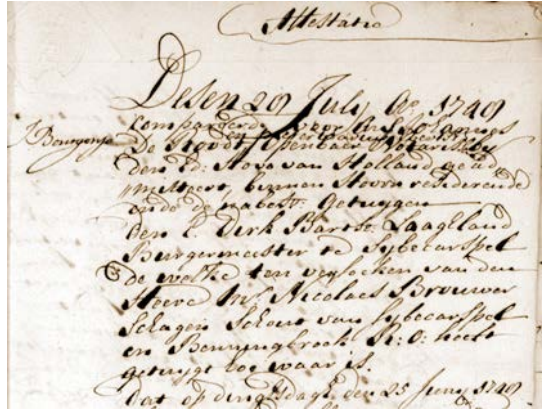 Attestatie
Desen 29 July Ao 1749
Compareerde voor mij
De Roodt openbaer Notaris bij
den Ed: Hove van Holland gead
mitteert, binnen Hoorn resideerende
ende de nabes: Getuygen
den E. Dirk Bartsz: Laagland
Burgermeester te Sybecarspel
de welke ten versoeken van den
Heere Mr. Nicolaes Brouwer
Schagen Schout van Sybecarspel
en Benningbroek R: O: heeft
getuygt hoe waar is.
dat op dingsdagh den 25 Juny 1749